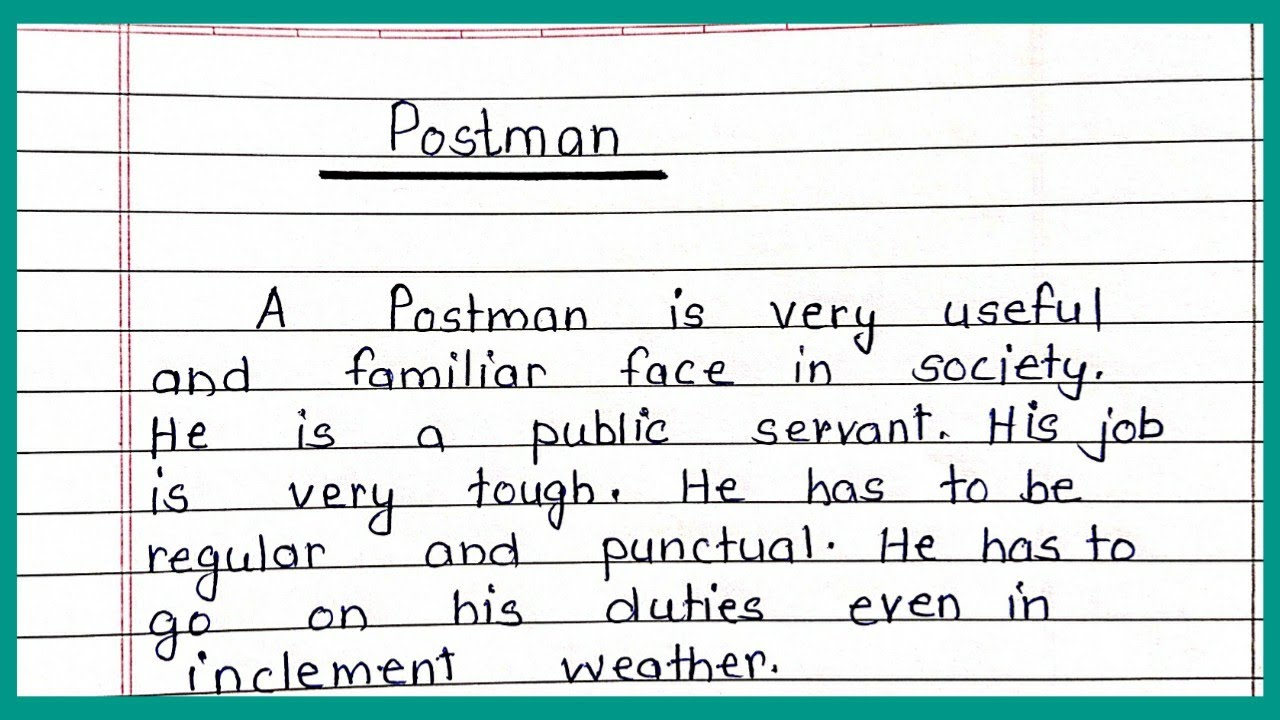 Postman
A Postman is very useful
and familiar face in society.
He is a public servant. His job
is very tough. He has to be
regular and punctual. He has to
go on his duties even in
inclement weather.